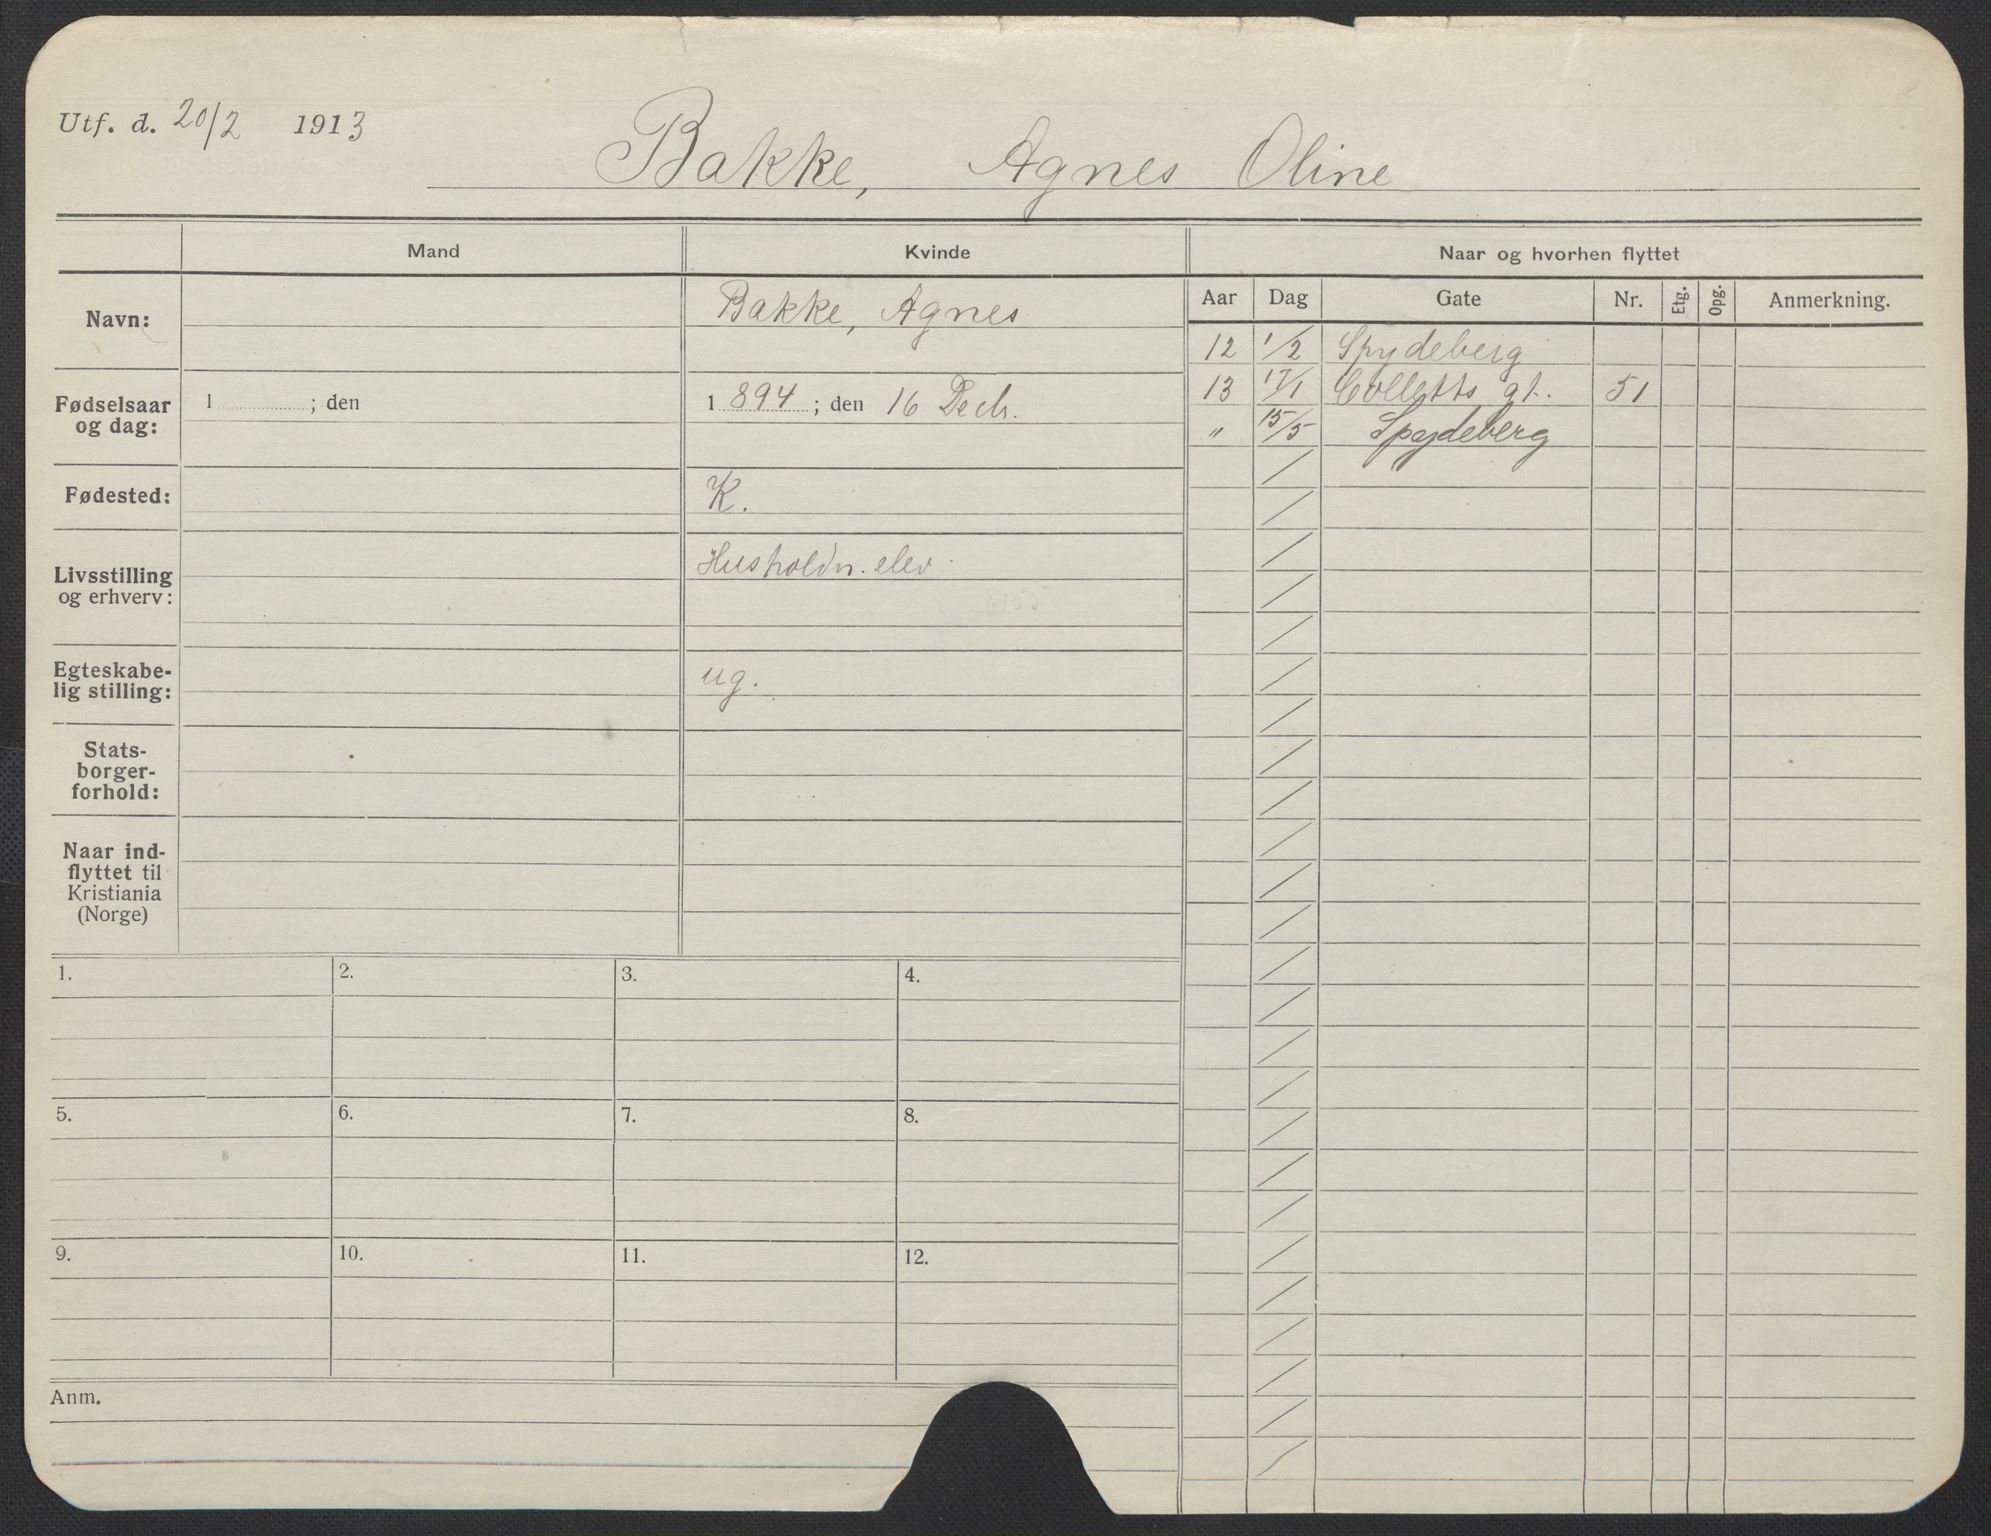 Utf. d. 20/2 1913
Bakke, Agnes Oline
Mand
Kvinde
Naar og hvorhen flyttet
Navn:
Bakke, Agnes
Fødselsaar og dag:
1 ; den
1 894 ; den 16 Decb.
Fødested:
K.
Livsstilling og erhverv:
Husholdn. elev.
Egteskabe-
lig stilling:
ug.
Stats-
borger-
forhold:
Naar ind-
flyttet til
Kristiania
(Norge)
Aar Dag Gate Nr. Etg. Opg. Anmerkning.
12 1/2 Spydeberg
13 17/1 Colletts gt. 51
" 15/5 Spydeberg
1. 2. 3. 4.
5. 6. 7. 8.
9. 10. 11. 12.
Anm.